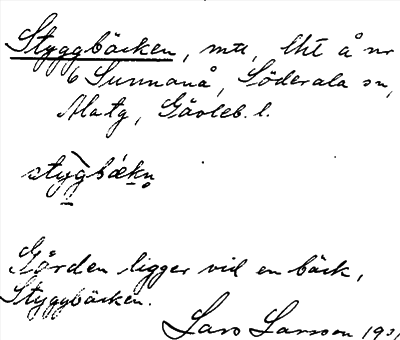 Styggbäcken, mtl, lht å nr
6 Sunnanå, Söderala sn,
Matg, Gävleb. l.
stygbækn
Gården ligger vid en bäck,
Styggbäcken.
Lars Larsson 1931